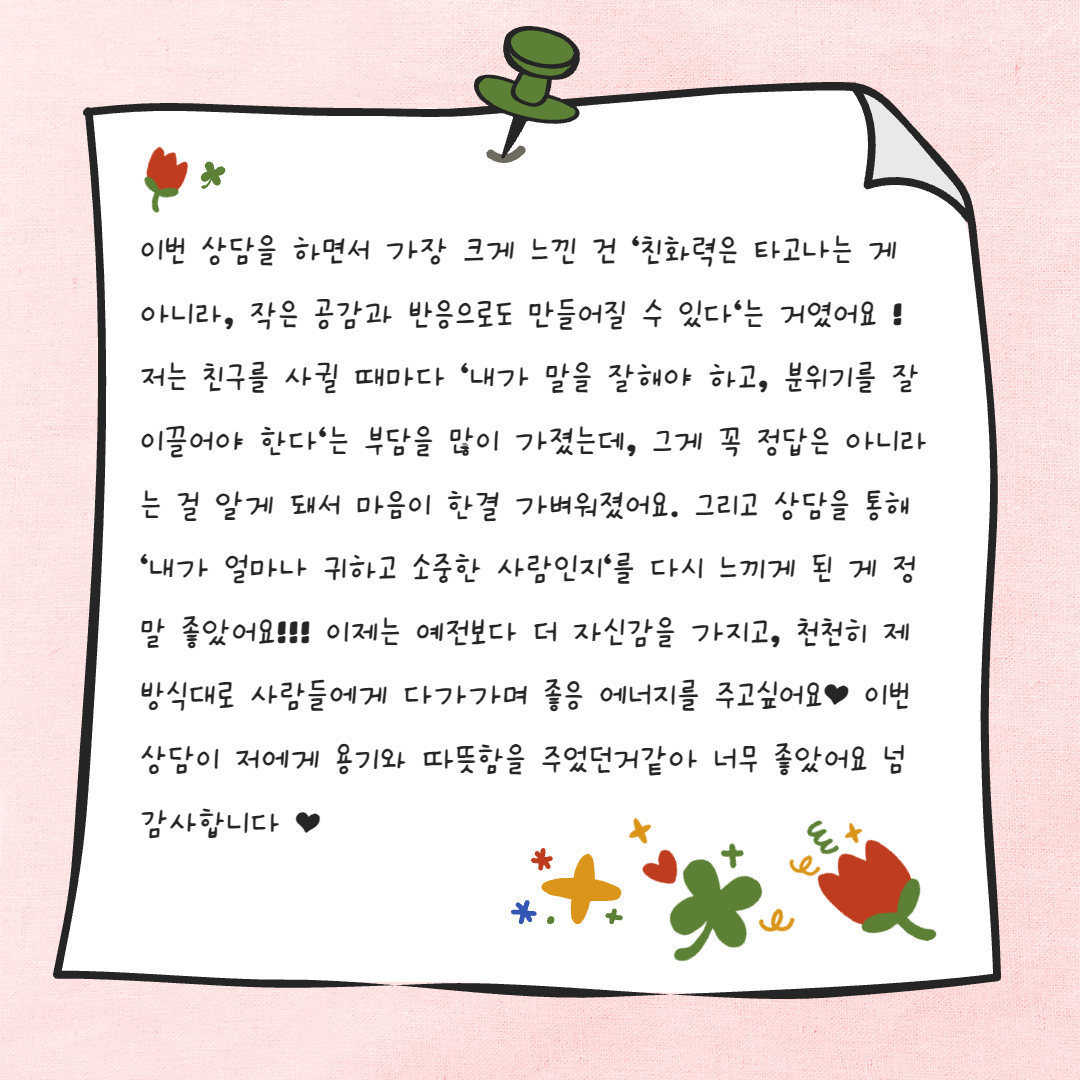 이번 상담을 하면서 가장 크게 느낀 건 ‘친화력은 타고나는 게
아니라, 작은 공감과 반응으로도 만들어질 수 있다‘는 거였어요 !
저는 친구를 사귈 때마다 ‘내가 말을 잘해야 하고, 분위기를 잘
이끌어야 한다‘는 부담을 많이 가졌는데, 그게 꼭 정답은 아니라
는 걸 알게 돼서 마음이 한결 가벼워졌어요. 그리고 상담을 통해
‘내가 얼마나 귀하고 소중한 사람인지‘를 다시 느끼게 된 게 정
말 좋았어요!!! 이제는 예전보다 더 자신감을 가지고, 천천히 제
방식대로 사람들에게 다가가며 좋응 에너지를 주고싶어요♥ 이번
상담이 저에게 용기와 따뜻함을 주었던거같아 너무 좋았어요 넘
감사합니다 ♥